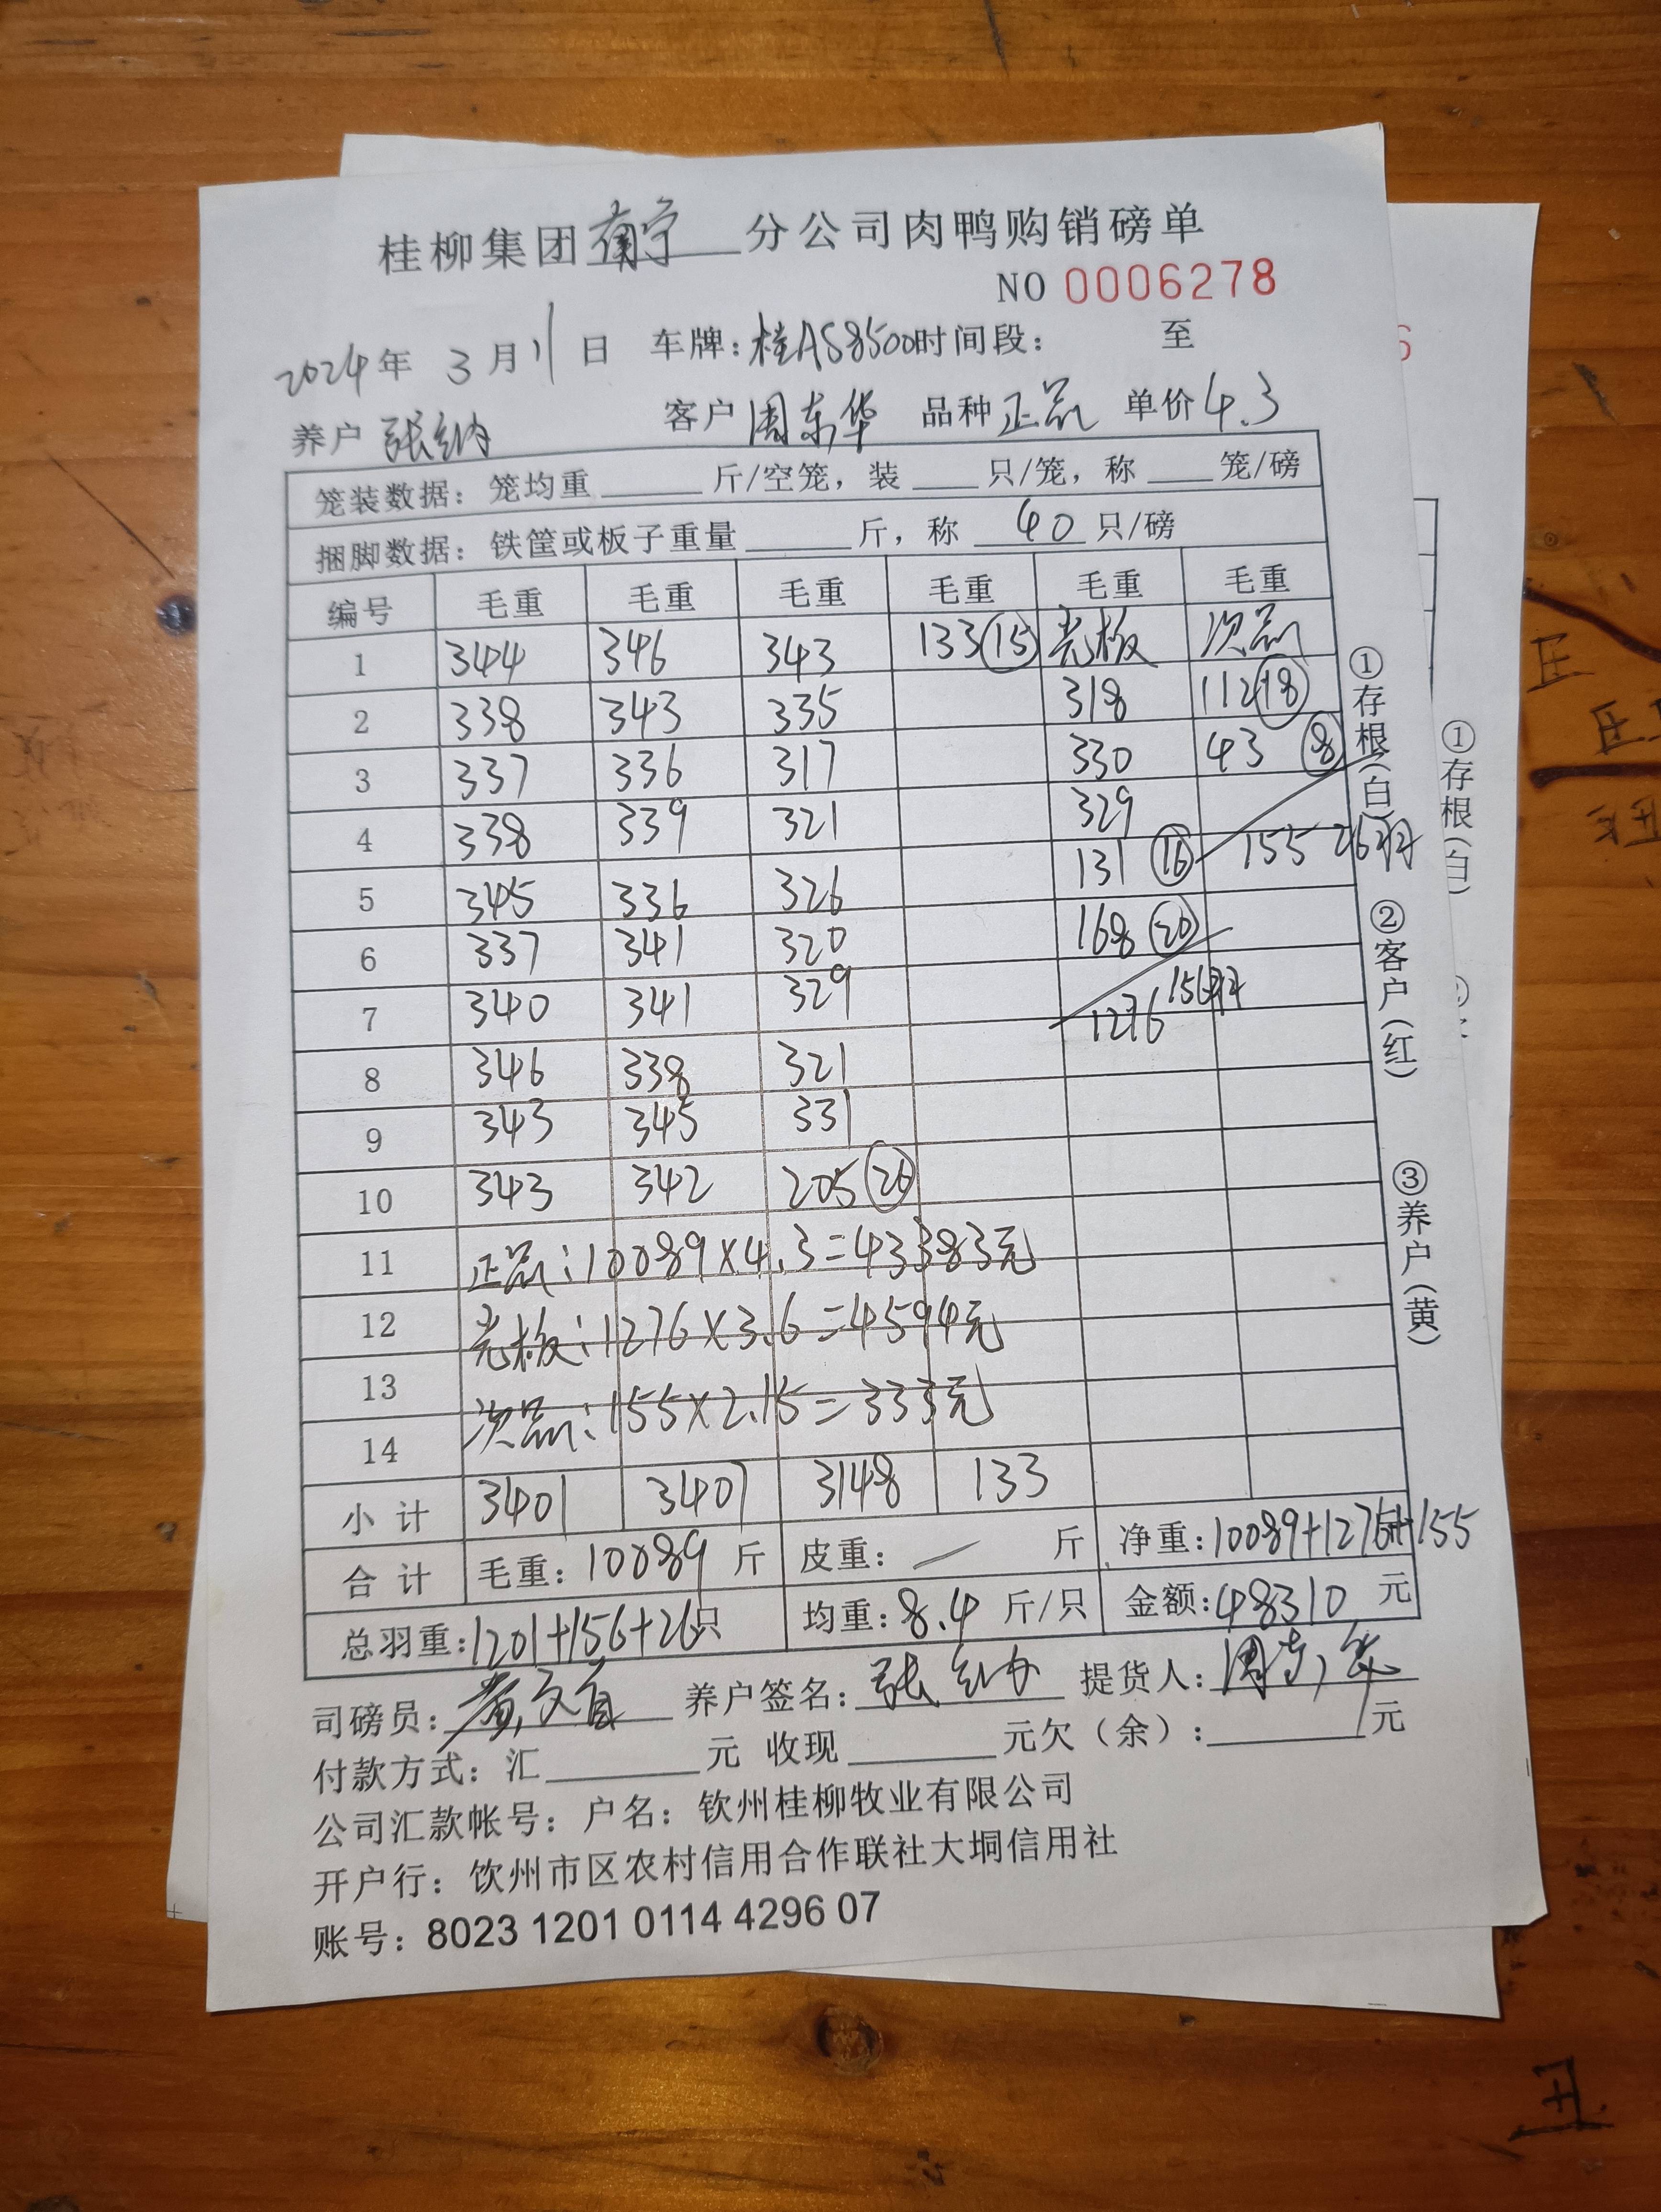 桂柳集团南宁分公司肉鸭购销磅单
NO 0006278
2024年 3月11日 车牌:桂AS8500时间段: 至
养户 张纳 客户 周东华 品种 正品 单价 4.3
笼装数据: 笼均重 斤/空笼, 装 只/笼, 称 笼/磅
捆脚数据: 铁筐或板子重量 斤, 称 40 只/磅
编号 毛重 毛重 毛重 毛重 毛重 毛重
1 344 346 343 133 ⑮ 光板 次品
2 338 343 335 318 112 ⑱
3 337 336 317 330 43 ⑧
4 338 339 321 329
5 345 336 326 131 ⑯ 155 26羽
6 337 341 320 168 ⑳
7 340 341 329 1276 156羽
8 346 338 321
9 343 345 331
10 343 342 205 ㉖
11 正品:10089×4.3=43383元
12 光板:1276×3.6=4594元
13 次品:155×2.15=333元
14
小计 3401 3407 3148 133
合计 毛重:10089 斤 皮重: — 斤 净重:10089+1276+155
总羽重:1201+156+26只 均重:8.4 斤/只 金额:48310 元
司磅员: 养户签名:张纳 提货人:周东华
付款方式: 汇 元 收现 元欠(余): 元
公司汇款帐号: 户名: 钦州桂柳牧业有限公司
开户行: 饮州市区农村信用合作联社大垌信用社
账号: 8023 1201 0114 4296 07
①存根(白) ②客户(红) ③养户(黄)
①存根(白)